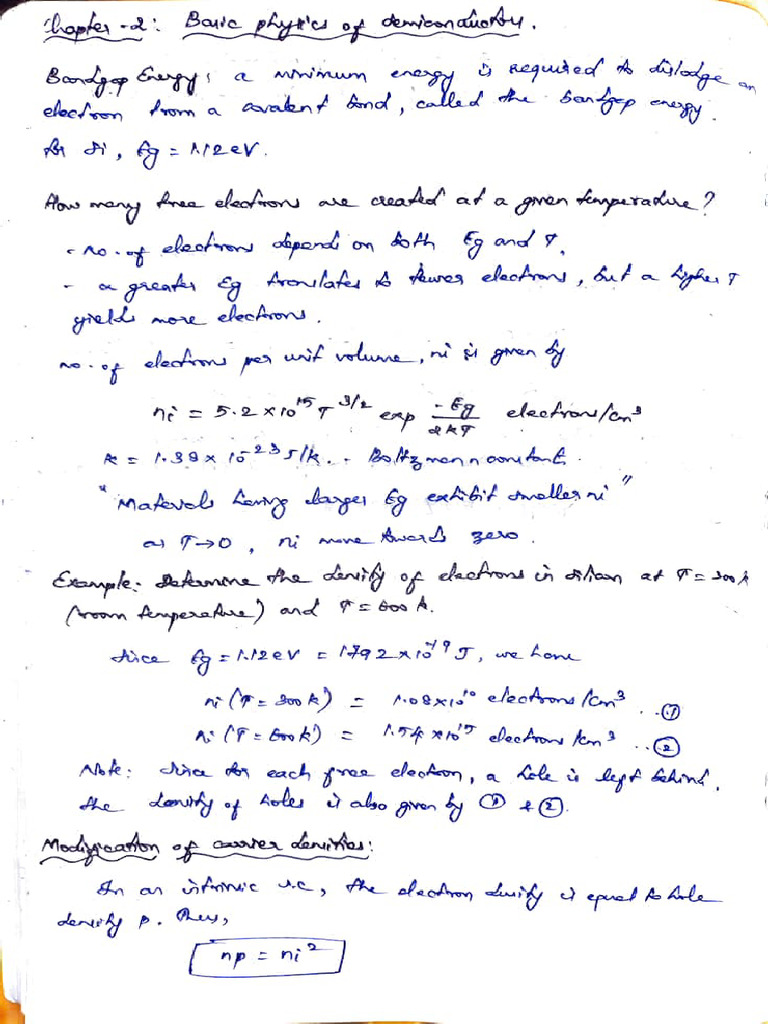 Chapter-2: Basic physics of semiconductors.
Bandgap Energy: a minimum energy is required to dislodge an
electron from a covalent bond, called the bandgap energy.
for Si, Eg = 1.12 eV.
How many free electrons are created at a given temperature?
- no. of electrons depend on both Eg and T.
- a greater Eg translates to fewer electrons, but a higher T
yields more electrons.
no. of electrons per unit volume, ni is given by
ni = 5.2 × 10^15 T^3/2 exp -Eg/2kT electrons/cm³
k = 1.38 × 10^-23 J/K. - Boltzmann constant.
"Materials having larger Eg exhibit smaller ni"
as T→0, ni move towards zero.
Example:- Determine the density of electrons in silicon at T = 300 K
(room temperature) and T = 600 K.
Since Eg = 1.12 eV = 1.792 × 10^-19 J, we have
ni (T = 300 K) = 1.08 × 10^10 electrons/cm³ ...①
ni (T = 600 K) = 1.54 × 10^15 electrons/cm³ ...②
Note: Since for each free electron, a hole is left behind,
the density of holes is also given by ① & ②.
Modification of carrier densities:
In an intrinsic s.c, the electron density is equal to hole
density p. Thus,
np = ni²